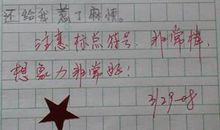 还给我惹了麻烦。
注意标点符号，非常棒，
想象力非常好！
3/29-08